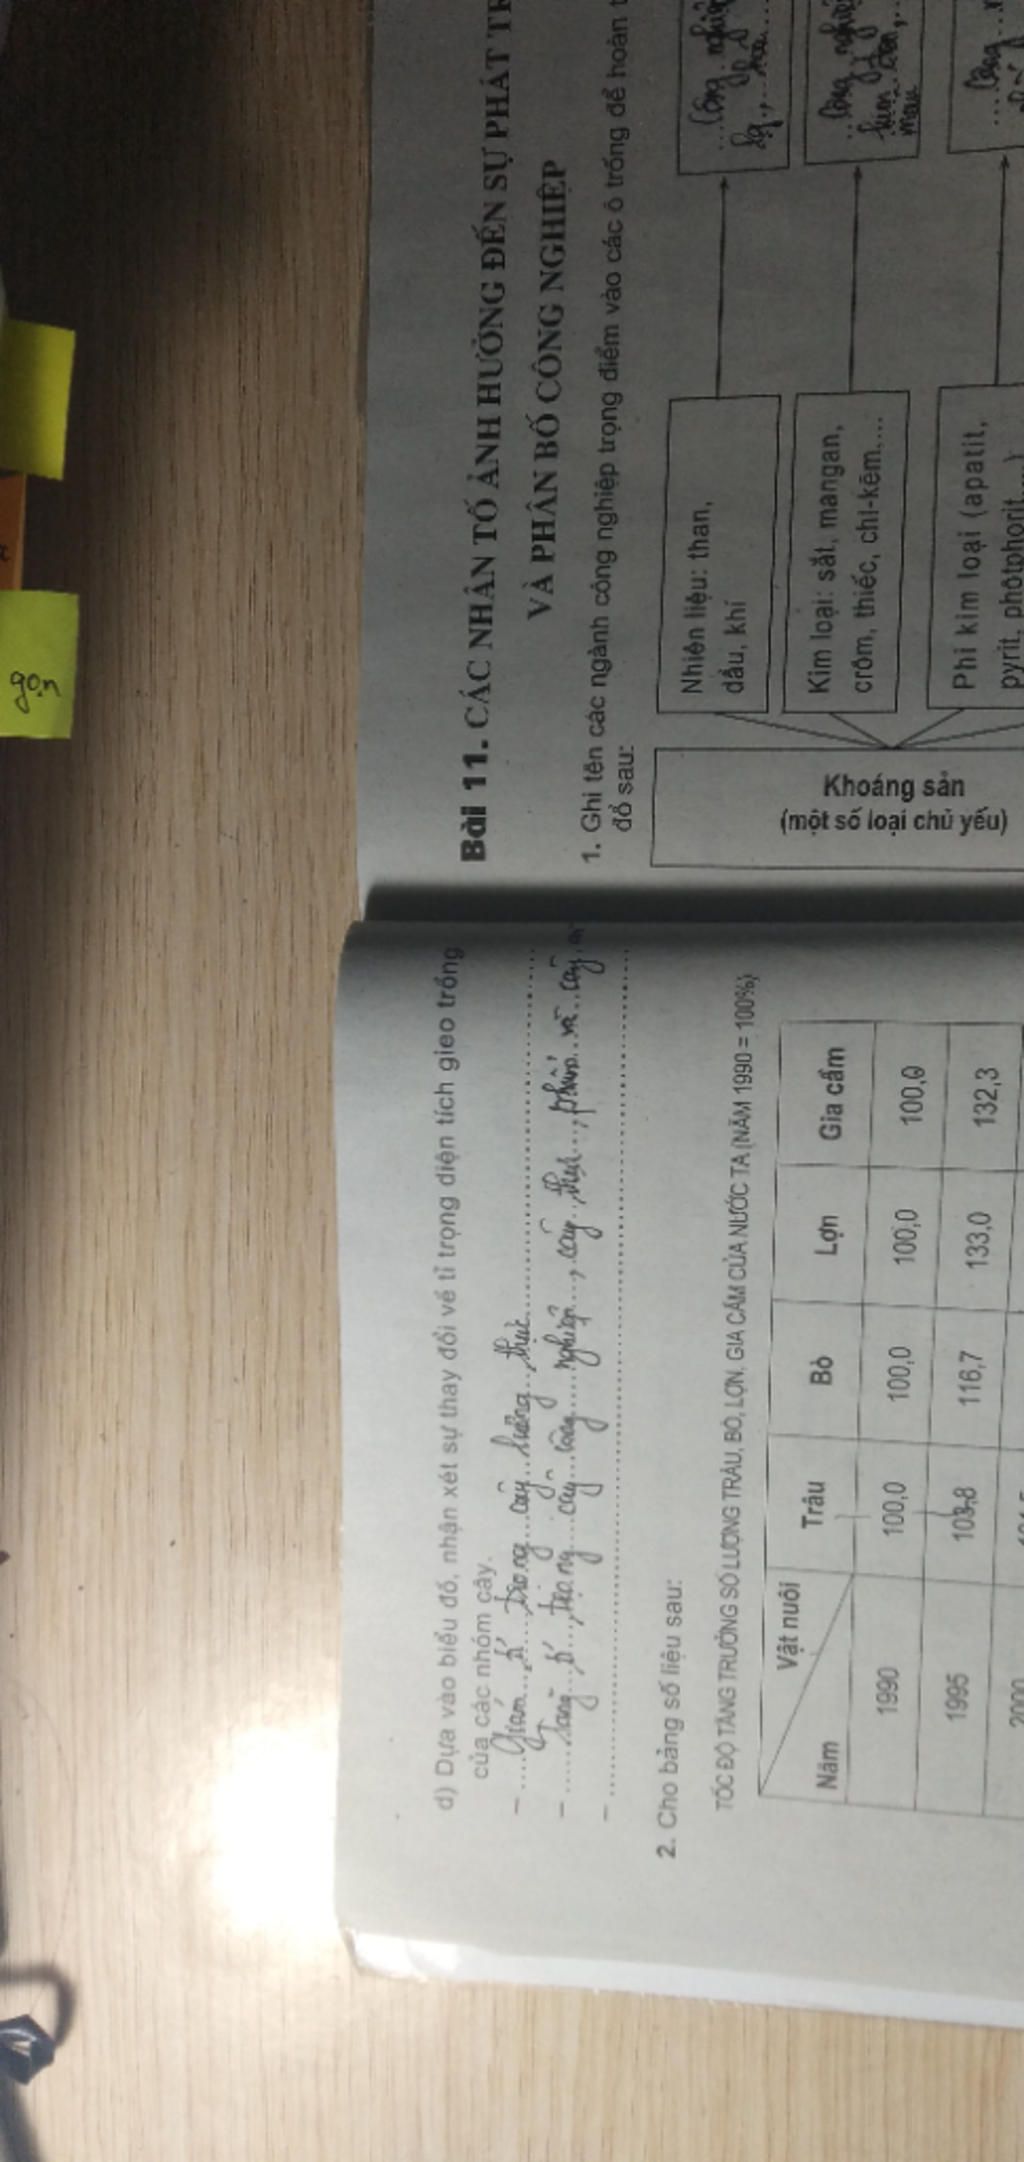 gọn
d) Dựa vào biểu đồ, nhận xét sự thay đổi về tỉ trọng diện tích gieo trồng
của các nhóm cây.
– Giảm tỉ trọng cây lương thực
– Tăng tỉ trọng cây công nghiệp, cây thực phẩm và cây
–
2. Cho bảng số liệu sau:
TỐC ĐỘ TĂNG TRƯỞNG SỐ LƯỢNG TRÂU, BÒ, LỢN, GIA CẦM CỦA NƯỚC TA (NĂM 1990 = 100%)
Vật nuôi
Năm Trâu Bò Lợn Gia cầm
1990 100,0 100,0 100,0 100,0
1995 103,8 116,7 133,0 132,3
2000
Bài 11. CÁC NHÂN TỐ ẢNH HƯỞNG ĐẾN SỰ PHÁT
VÀ PHÂN BỐ CÔNG NGHIỆP
1. Ghi tên các ngành công nghiệp trọng điểm vào các ô trống để hoàn
đồ sau:
Khoáng sản
(một số loại chủ yếu)
Nhiên liệu: than,
dầu, khí
Công nghiệp
Kim loại: sắt, mangan,
crôm, thiếc, chì-kẽm....
Công nghiệp
kim đen,
màu
Phi kim loại (apatit,
pyrit, phôtphorit...)
Công